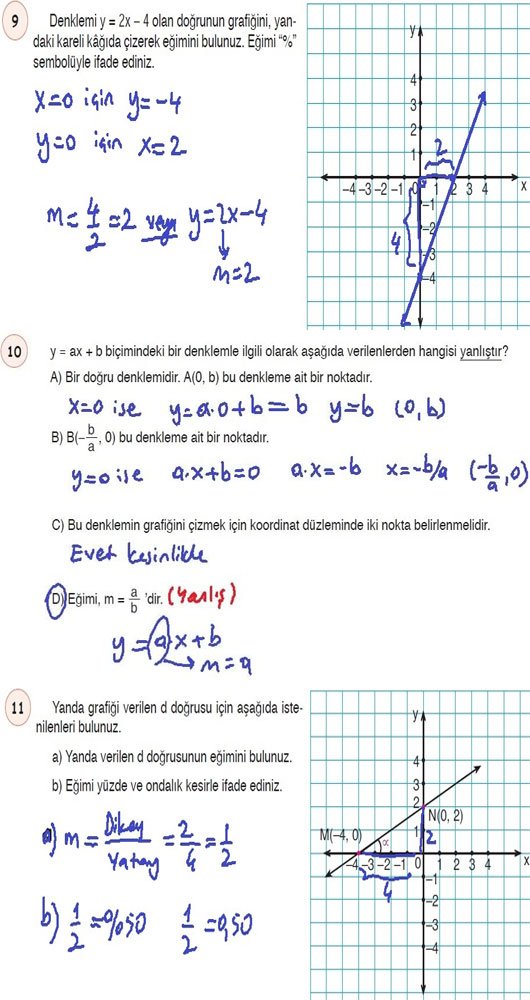 9 Denklemi y = 2x – 4 olan doğrunun grafiğini, yan-
daki kareli kâğıda çizerek eğimini bulunuz. Eğimi "%"
sembolüyle ifade ediniz.
x=0 için y=-4
y=0 için x=2
m=4/2=2 veya y=2x-4
m=2
y
4
3
2
1
–4 –3 –2 –1 0 1 2 3 4 x
–1
–2
–3
–4
2
4
10 y = ax + b biçimindeki bir denklemle ilgili olarak aşağıda verilenlerden hangisi yanlıştır?
A) Bir doğru denklemidir. A(0, b) bu denkleme ait bir noktadır.
x=0 ise y=a.0+b=b y=b (0,b)
B) B(–b/a, 0) bu denkleme ait bir noktadır.
y=0 ise a.x+b=0 a.x=-b x=-b/a (-b/a,0)
C) Bu denklemin grafiğini çizmek için koordinat düzleminde iki nokta belirlenmelidir.
Evet kesinlikle
D) Eğimi, m = a/b 'dir. (Yanlış)
y=a.x+b
m=a
11 Yanda grafiği verilen d doğrusu için aşağıda iste-
nilenleri bulunuz.
a) Yanda verilen d doğrusunun eğimini bulunuz.
b) Eğimi yüzde ve ondalık kesirle ifade ediniz.
a) m=Dikey/Yatay=2/4=1/2
b) 1/2=%50 1/2=0,50
y
4
3
2
N(0, 2)
1
M(–4, 0)
α
2
–4 –3 –2 –1 0 1 2 3 4 x
–1
–2
–3
–4
4